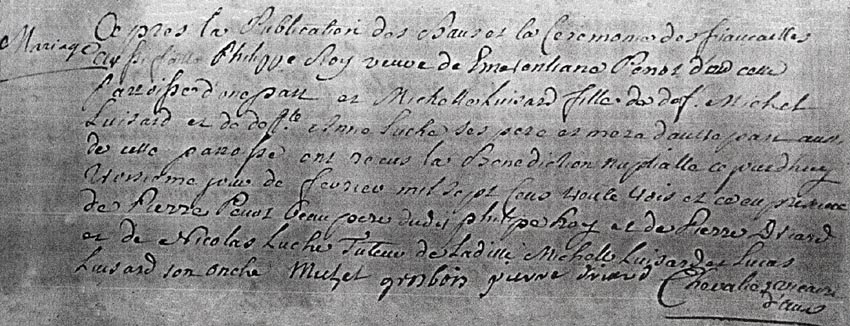 Mariage
Apres la Publication des Bans et la Ceremonie des fiancailles
Philippe Roy veuve de Emerentiane Penot de cette
Parroisse d'une part et Michelle Luisard fille de def. Michel
Luisard et de deffte Anne Luche ses pere et mere d'autre part aussi
de cette paroisse ont recus la Benediction nuptialle ce jourdhuy
troisieme jour de fevrier mil sept cens trente trois et ce en presence
de Pierre Penot beaupere dudit philippe Roy et de Pierre Driard
et de Nicolas Luche Tuteur de Laditte Michelle Luisard et Lucas
Luisard son oncle pierre driard Chevalier vicaire